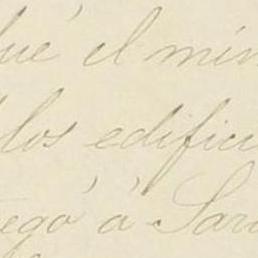 fué el min
los edifici
egó á Sar